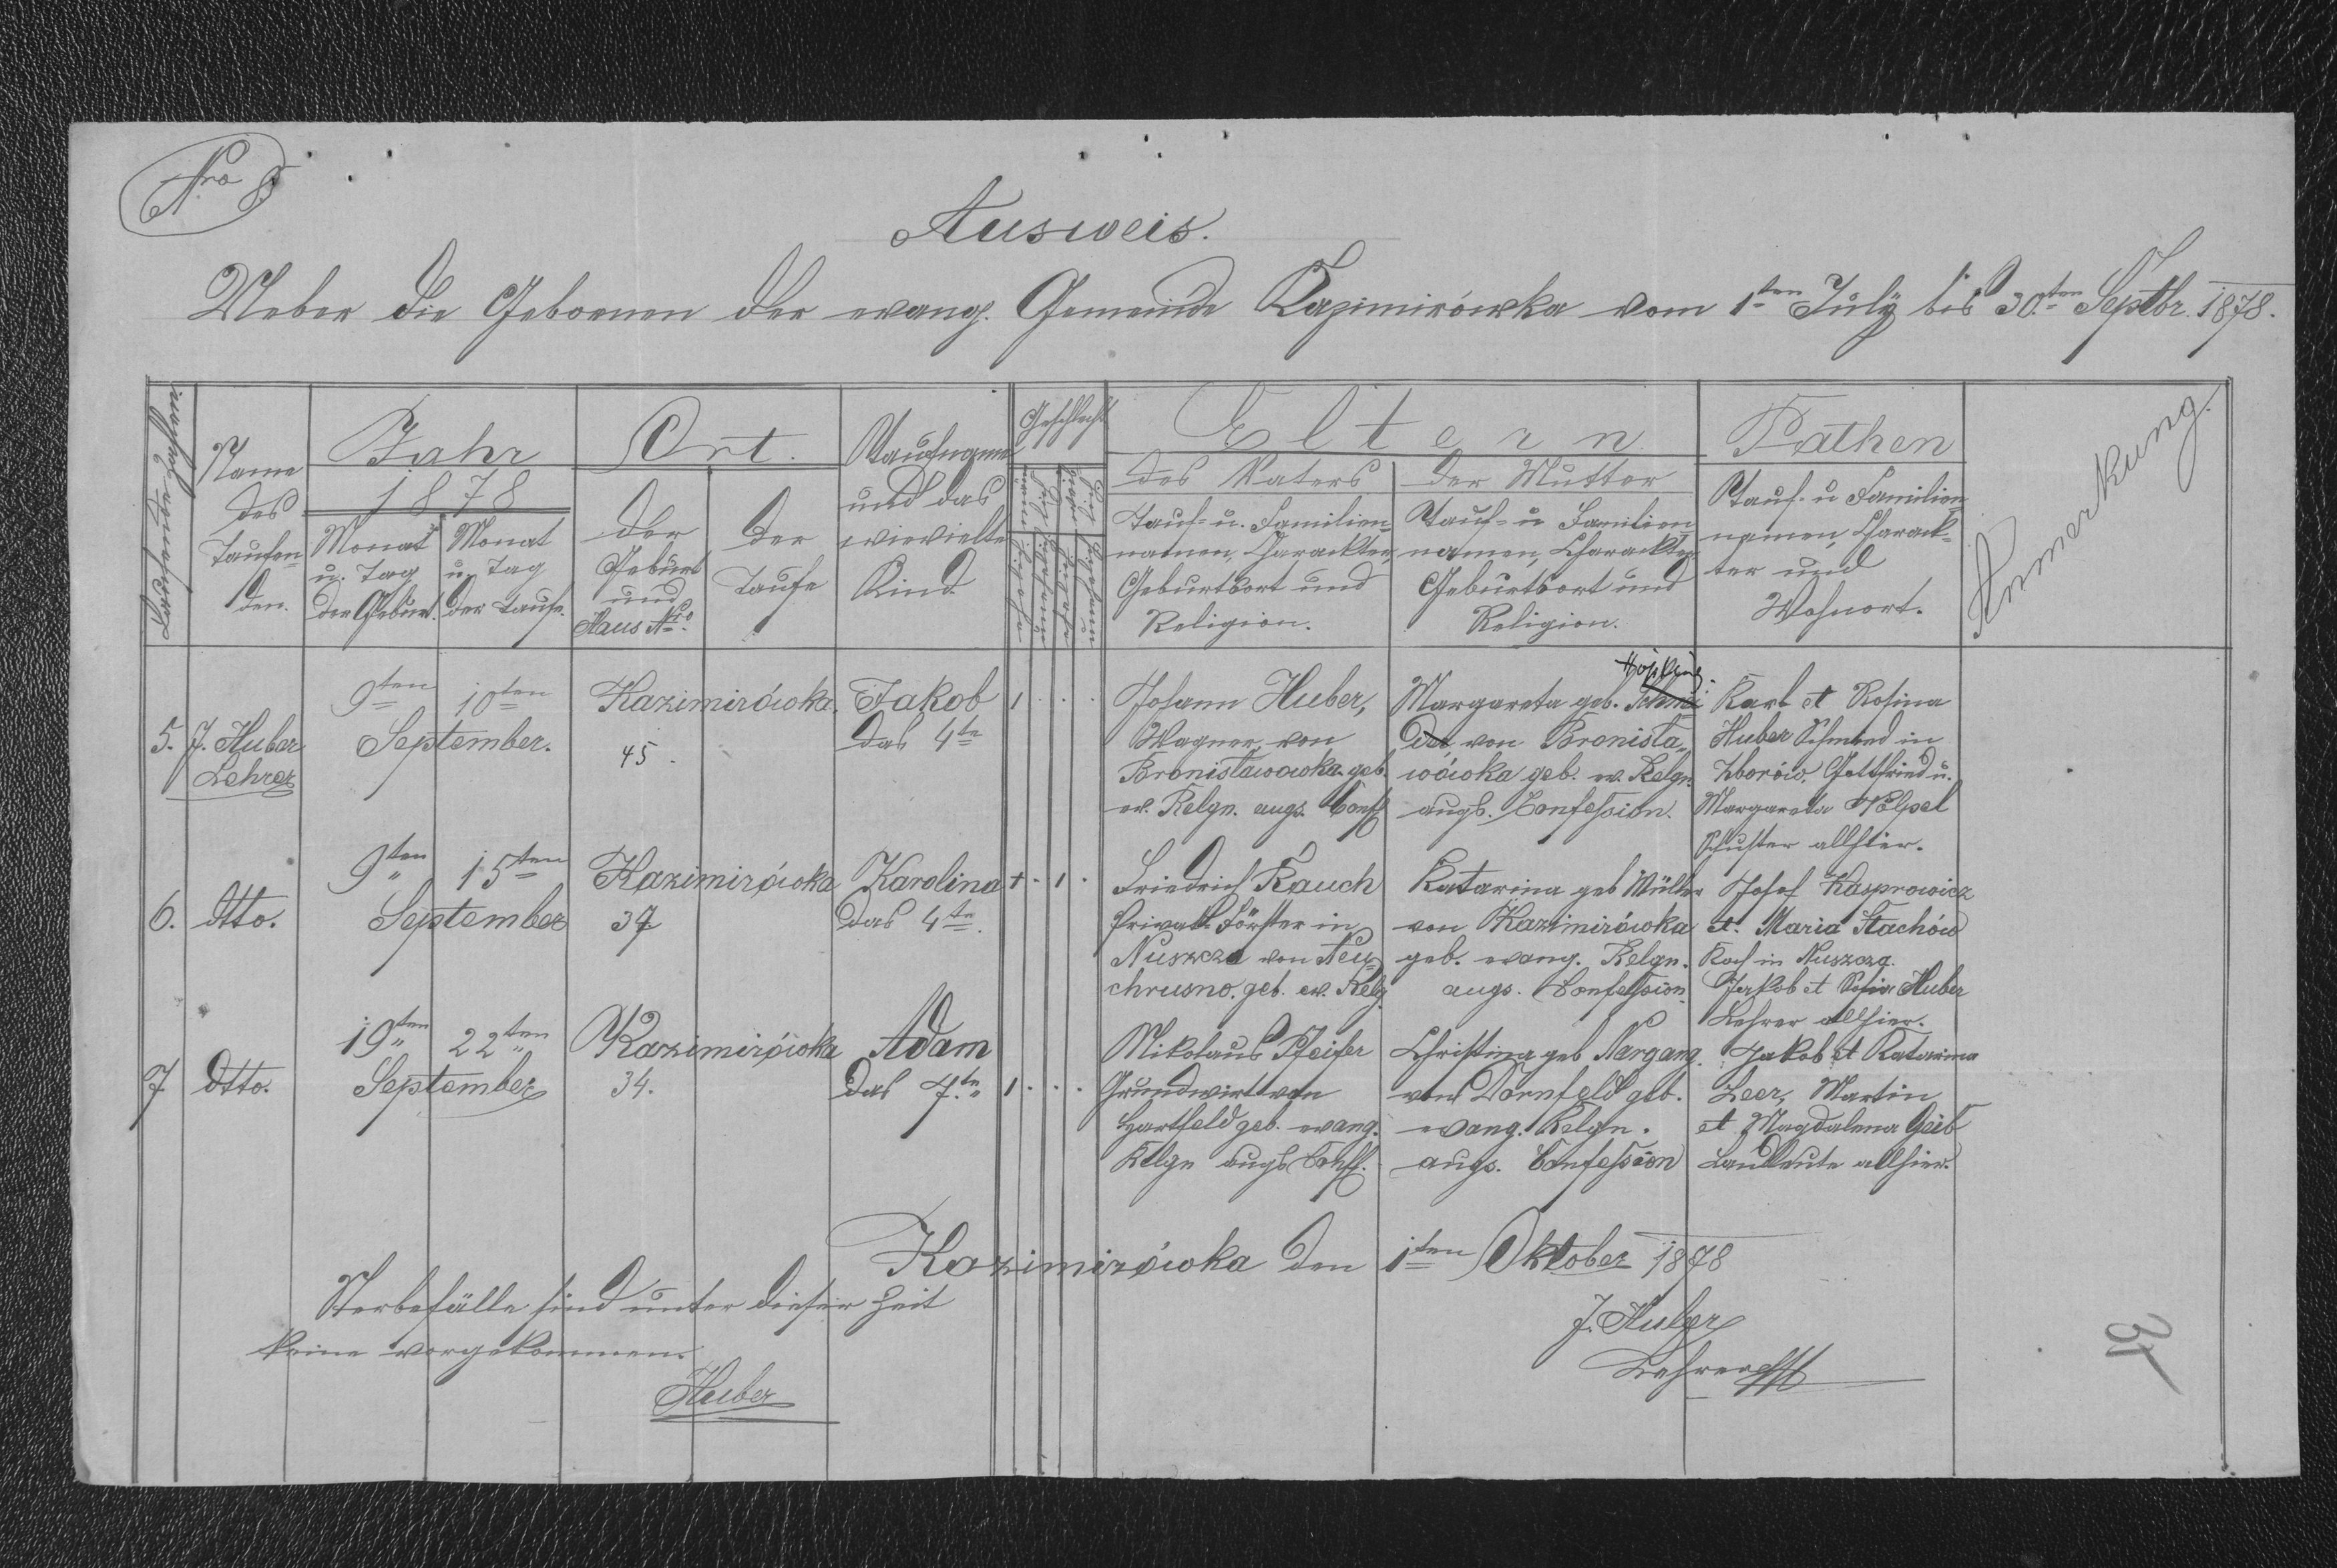 Nro 8
Ausweis.
Ueber die Gebornen der evang. Gemeinde Kazimirówka vom 1ten July bis 30ten Septbr. 1878.
Name
des
Taufen-
den.
Jahr
1878
Monat
u. Tag
der Geburt.
Monat
u. Tag
der Taufe.
Ort.
der
Geburt
und
Haus Nro.
der
Taufe
Taufname
und das
wievielte
Kind
Geschlecht
Eltern
des Vaters
Tauf- u. Familien-
namen, Charackter,
Geburtsort und
Religion.
der Mutter
Tauf- u Familien-
namen, Charackter
Geburtsort und
Religion.
Pathen
Tauf- u Familien
namen, Charack-
ter und
Wohnort.
Anmerkung.
5. J. Huber
Lehrer
9ten 10ten
September.
Kazimirówka.
45.
Jakob
das 4te
1 . . .
Johann Huber,
Wagner, von
Bronisławowka. geb.
ev. Relgn. augs. Conf
Margareta geb. Schnei
der von Bronisła-
wówka geb. ev. Relgn.
augs. Confession.
Karl et Rosina
Huber Schmied in
Zborów. Gottfried u.
Margareta
Schuster allhier.
6. dtto.
9ten 15ten
September
Kazimirówka
37
Karolina
das 4te.
+ . 1 .
Friedrich Rauch
Privat-Förster in
Nuszcze von Neu-
chrusno. geb. ev. Relg.
Katarina geb Müller
von Kazimirówka
geb. evang. Relgn.
augs. Confession.
Josef Kasprowicz
et. Maria Stachów
Koch in Nuszcza.
Jakob et Huber
Lehrer allhier.
7 dtto.
19ten 22ten
September
Kazimirówka
34.
Adam
das 7te
1 . . .
Mikolaus Pfeifer
Grundwirt von
Hartfeld geb. evang.
Relgn augs Conf.
Christina geb Nargang.
von Dornfeld geb.
evang. Relgn.
augs. Confession
Jakob et Katarina
Leer, Martin
et Magdalena Geib
Landleute allhier.
Kazimirówka den 1ten Oktober 1878
Sterbefälle sind unter dieser Zeit
keine vorgekommen.
Huber
J. Huber
Lehrer